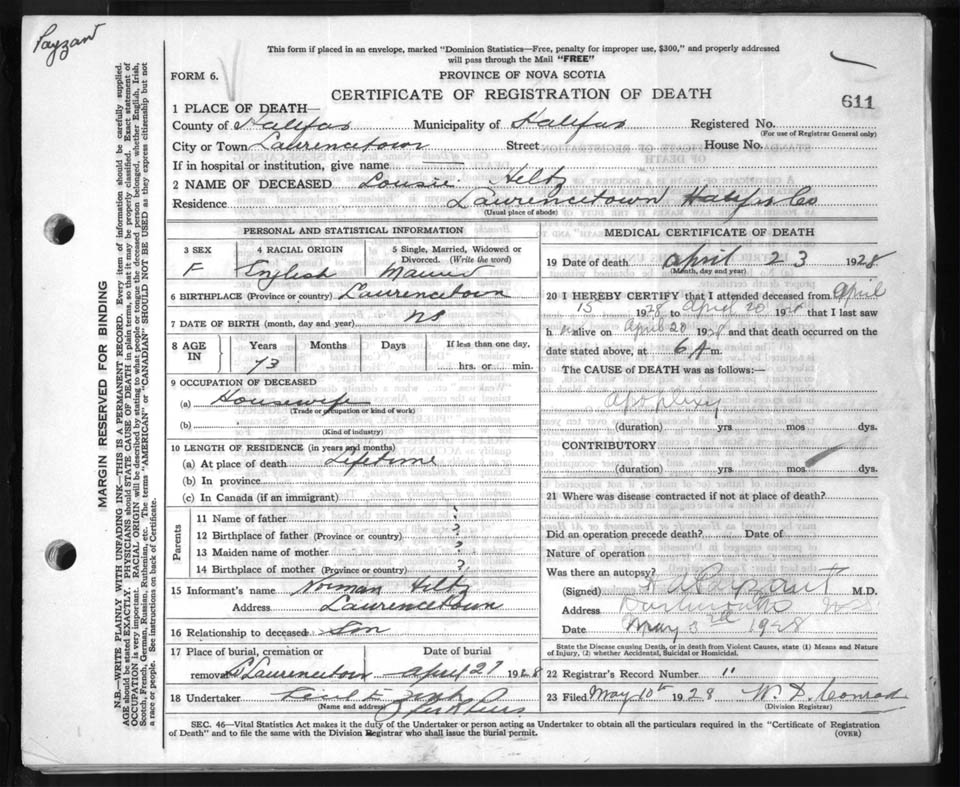 Payzant
This form if placed in an envelope, marked "Dominion Statistics—Free, penalty for improper use, $300," and properly addressed
will pass through the Mail "FREE"
FORM 6.
PROVINCE OF NOVA SCOTIA
CERTIFICATE OF REGISTRATION OF DEATH
611
1 PLACE OF DEATH—
County of Halifax Municipality of Halifax Registered No.
(For use of Registrar General only)
City or Town Laurencetown Street House No.
If in hospital or institution, give name
2 NAME OF DECEASED Lousie Hiltz
Residence Laurencetown Halifax Co
(Usual place of abode)
PERSONAL AND STATISTICAL INFORMATION
3 SEX 4 RACIAL ORIGIN 5 Single, Married, Widowed or
Divorced. (Write the word)
F English Married
6 BIRTHPLACE (Province or country) Laurencetown
7 DATE OF BIRTH (month, day and year) NS
8 AGE IN Years Months Days If less than one day,
73 hrs. or min.
9 OCCUPATION OF DECEASED
(a) Housewife
(Trade or occupation or kind of work)
(b)
(Kind of industry)
10 LENGTH OF RESIDENCE (in years and months)
(a) At place of death Lifetime
(b) In province
(c) In Canada (if an immigrant)
Parents
11 Name of father ?
12 Birthplace of father (Province or country) ?
13 Maiden name of mother ?
14 Birthplace of mother (Province or country) ?
15 Informant's name Norman Hiltz
Address Laurencetown
16 Relationship to deceased Son
17 Place of burial, cremation or Date of burial
removal Laurencetown April 27 1928
18 Undertaker
(Name and address)
MEDICAL CERTIFICATE OF DEATH
19 Date of death April 23 1928
(Month, day and year)
20 I HEREBY CERTIFY that I attended deceased from April
15 1928 to April 20 1928 that I last saw
h er alive on April 20 1928 and that death occurred on the
date stated above, at 6 A m.
The CAUSE of DEATH was as follows:—
Apoplexy
(duration) yrs. mos. dys.
CONTRIBUTORY
(duration) yrs. mos. dys.
21 Where was disease contracted if not at place of death?
Did an operation precede death? Date of
Nature of operation
Was there an autopsy?
(Signed) Payzant M.D.
Address Dartmouth N.S.
Date May 3rd 1928
State the Disease causing Death, or in death from Violent Causes, state (1) Means and Nature
of Injury, (2) whether Accidental, Suicidal or Homicidal.
22 Registrar's Record Number 11
23 Filed May 10th 1928 W. D. Conrad
(Division Registrar)
SEC. 46—Vital Statistics Act makes it the duty of the Undertaker or person acting as Undertaker to obtain all the particulars required in the "Certificate of Registration
of Death" and to file the same with the Division Registrar who shall issue the burial permit.
(OVER)
MARGIN RESERVED FOR BINDING
N.B.—WRITE PLAINLY WITH UNFADING INK—THIS IS A PERMANENT RECORD. Every item of information should be carefully supplied.
AGE should be stated EXACTLY. PHYSICIANS should STATE CAUSE OF DEATH in plain terms, so that it may be properly classified. Exact statement of
OCCUPATION is very important. RACIAL ORIGIN will be described by stating to what people or tongue the deceased person belonged, whether English, Irish,
Scotch, French, German, Russian, Ruthenian, etc. The terms "AMERICAN" or "CANADIAN" SHOULD NOT BE USED as they express citizenship but not
a race or people. See instructions on back of Certificate.